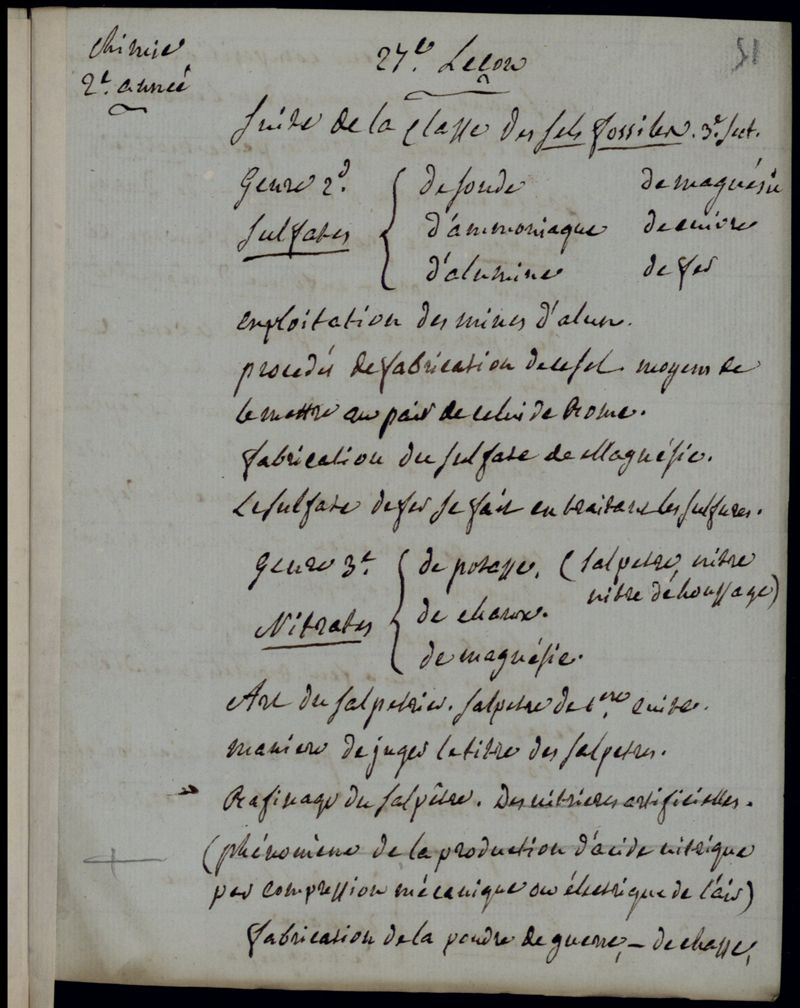 chimie
2e. année
27e. Leçon
51
Suite de la classe des sels fossiles. 3e. sect.
Genre 2d. de soude de magnésie
Sulfates d'ammoniaque de cuivre
d'alumine de fer
exploitation des mines d'alun.
procédés de fabrication de ce sel. moyens de
le mettre au pair de celui de Rome.
fabrication du sulfate de Magnésie.
Le sulfate de fer se fait en traitant les sulfures.
Genre 3e. de potasse. (salpetre, nitre
nitre d'houssage)
Nitrates de chaux.
de magnésie.
Art du salpetrier. salpetre de 1ere. cuite.
maniere de juger le titre des salpetres.
Rafinage du salpêtre. Des nitrieres artificielles.
(phénomène de la production d'acide nitrique
par compression mécanique ou électrique de l'air)
fabrication de la poudre de guerre, – de chasse,